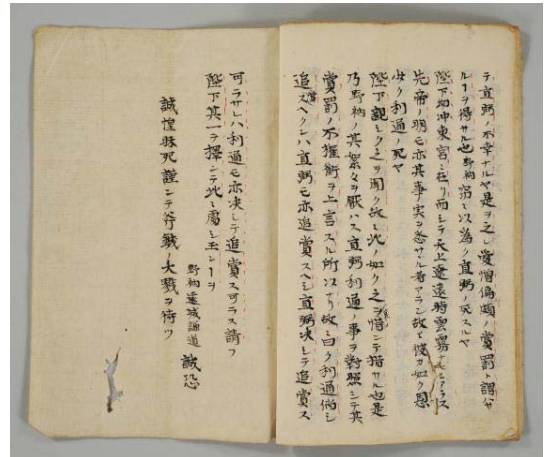 テ直弼ノ不幸ナルヤ是ヲ之レ愛憎偏頗ノ賞罰ト謂サ
ルヿヲ得サル也野衲窃ニ以為ク直弼ノ死スルヤ
陛下幼冲東宮ニ在リ而シテ天上遼遠時雲霧ナキニアラス
先帝ノ明モ亦其事実ヲ悉サル者アラン故ニ彼カ如ク恩
少ク利通ノ死ヤ
陛下親シク之ヲ聞ク故ニ此ノ如ク之ヲ惜ンテ措サル也是
乃野衲ノ其絮々ヲ厭ハス直弼利通ノ事ヲ対照シテ其
賞罰ノ不権衡ヲ上言スル所以ナリ故ニ曰ク利通倘シ
追賞スヘクンハ直弼モ亦追賞スヘシ直弼決シテ追賞ス
可ラサレハ利通モ亦決シテ追賞ス可ラス請フ
陛下其一ヲ擇ンテ此ニ處シ玉ンヿヲ
誠惶昧死謹ンテ斧鉞ノ大戮ヲ待ツ
野衲遠城謙道 誠恐